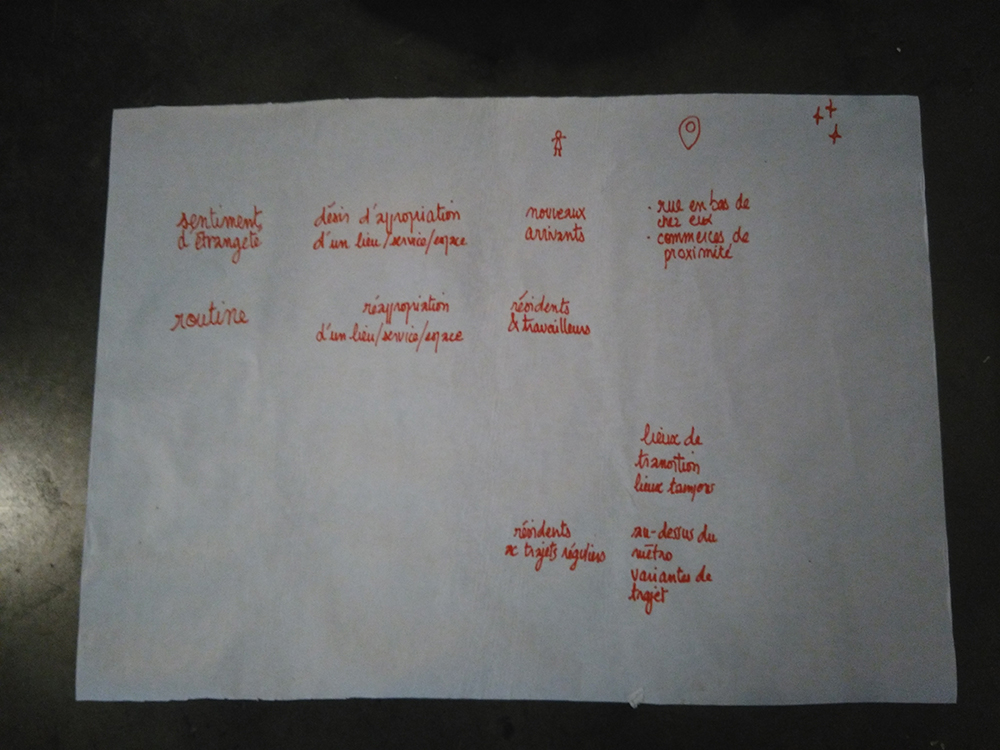 sentiment
d'étrangeté
désir d'appropriation
d'un lieu/service/espace
nouveaux
arrivants
· rue en bas de
chez eux
· commerces de
proximité
routine
réappropriation
d'un lieu/service/espace
résidents
& travailleurs
lieux de
transition
lieux tampons
résidents
ac trajets réguliers
au-dessus du
métro
variantes de
trajet